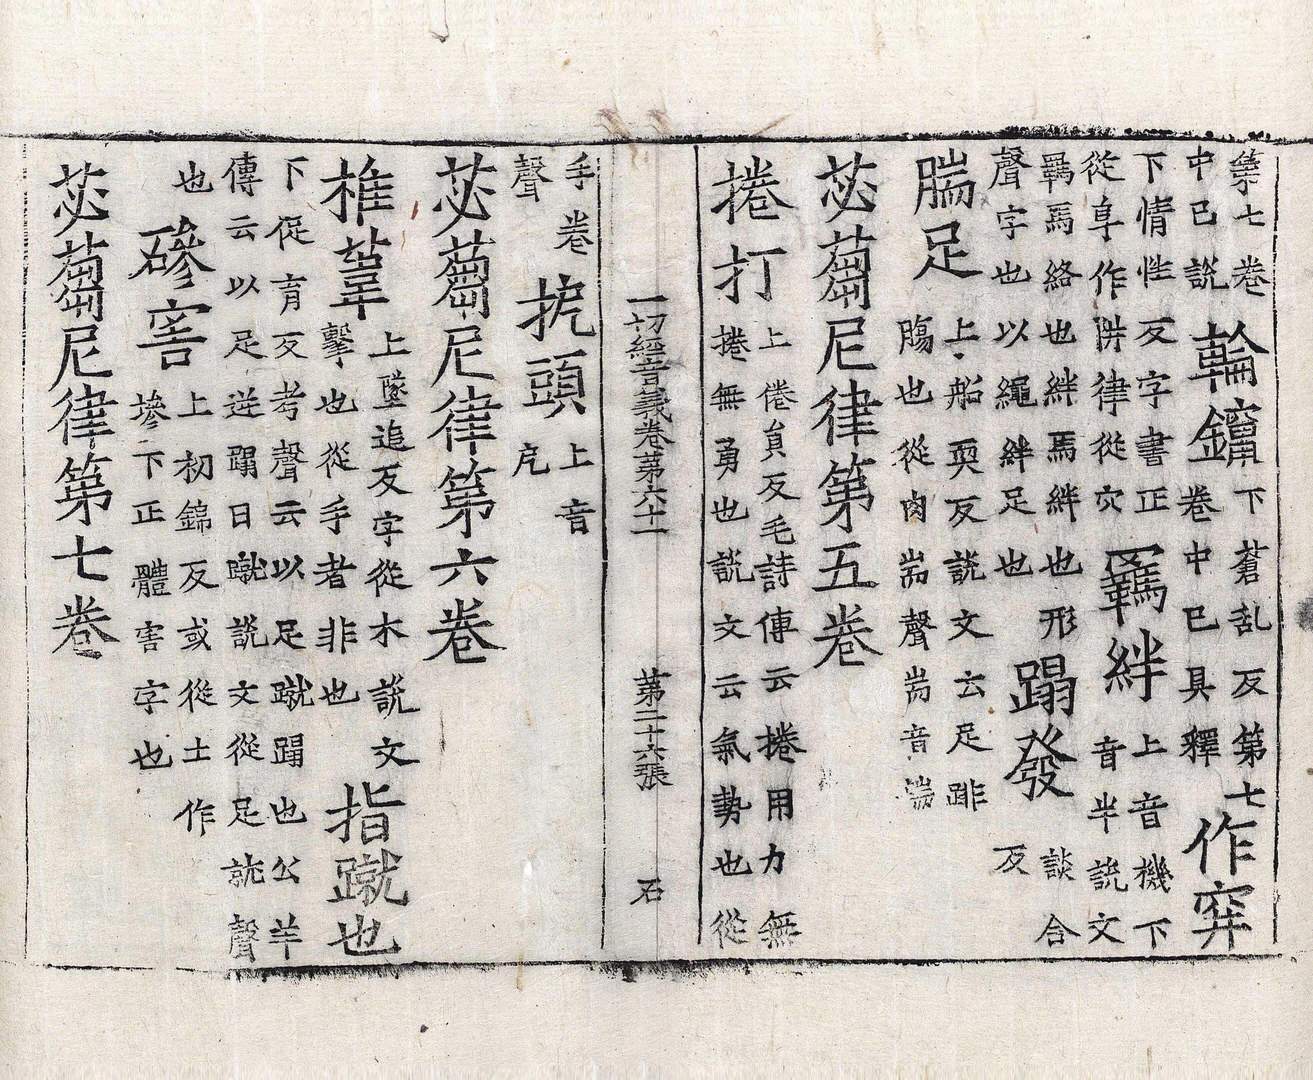 第七卷
中已説
輪鑹
下蒼乱反第七
卷中已具釋
作穽
下情性反字書正
從阜作阱律從穴
羈絆
上音機下
音半説文
羈馬絡也絆馬絆也形
聲字也以繩絆足也
蹋發
談合
反
腨足
上船耎反説文云足跰
腸也從肉耑聲耑音端
苾蒭尼律第五卷
捲打
上倦員反毛詩傳云捲用力無
捲無勇也説文云氣勢也從
一切經音義卷第六十一 第二十六張 石
手卷
聲
頭
上音
苾蒭尼律第六卷
椎葦
上墜追反字從木説文
擊也從手者非也
指蹴也
下促育反考聲云以足蹴蹋也公羊
傳云以足逆蹋曰蹴説文從足就聲
也
磣害
上初錦反或從土作
墋下正體害字也
苾蒭尼律第七卷